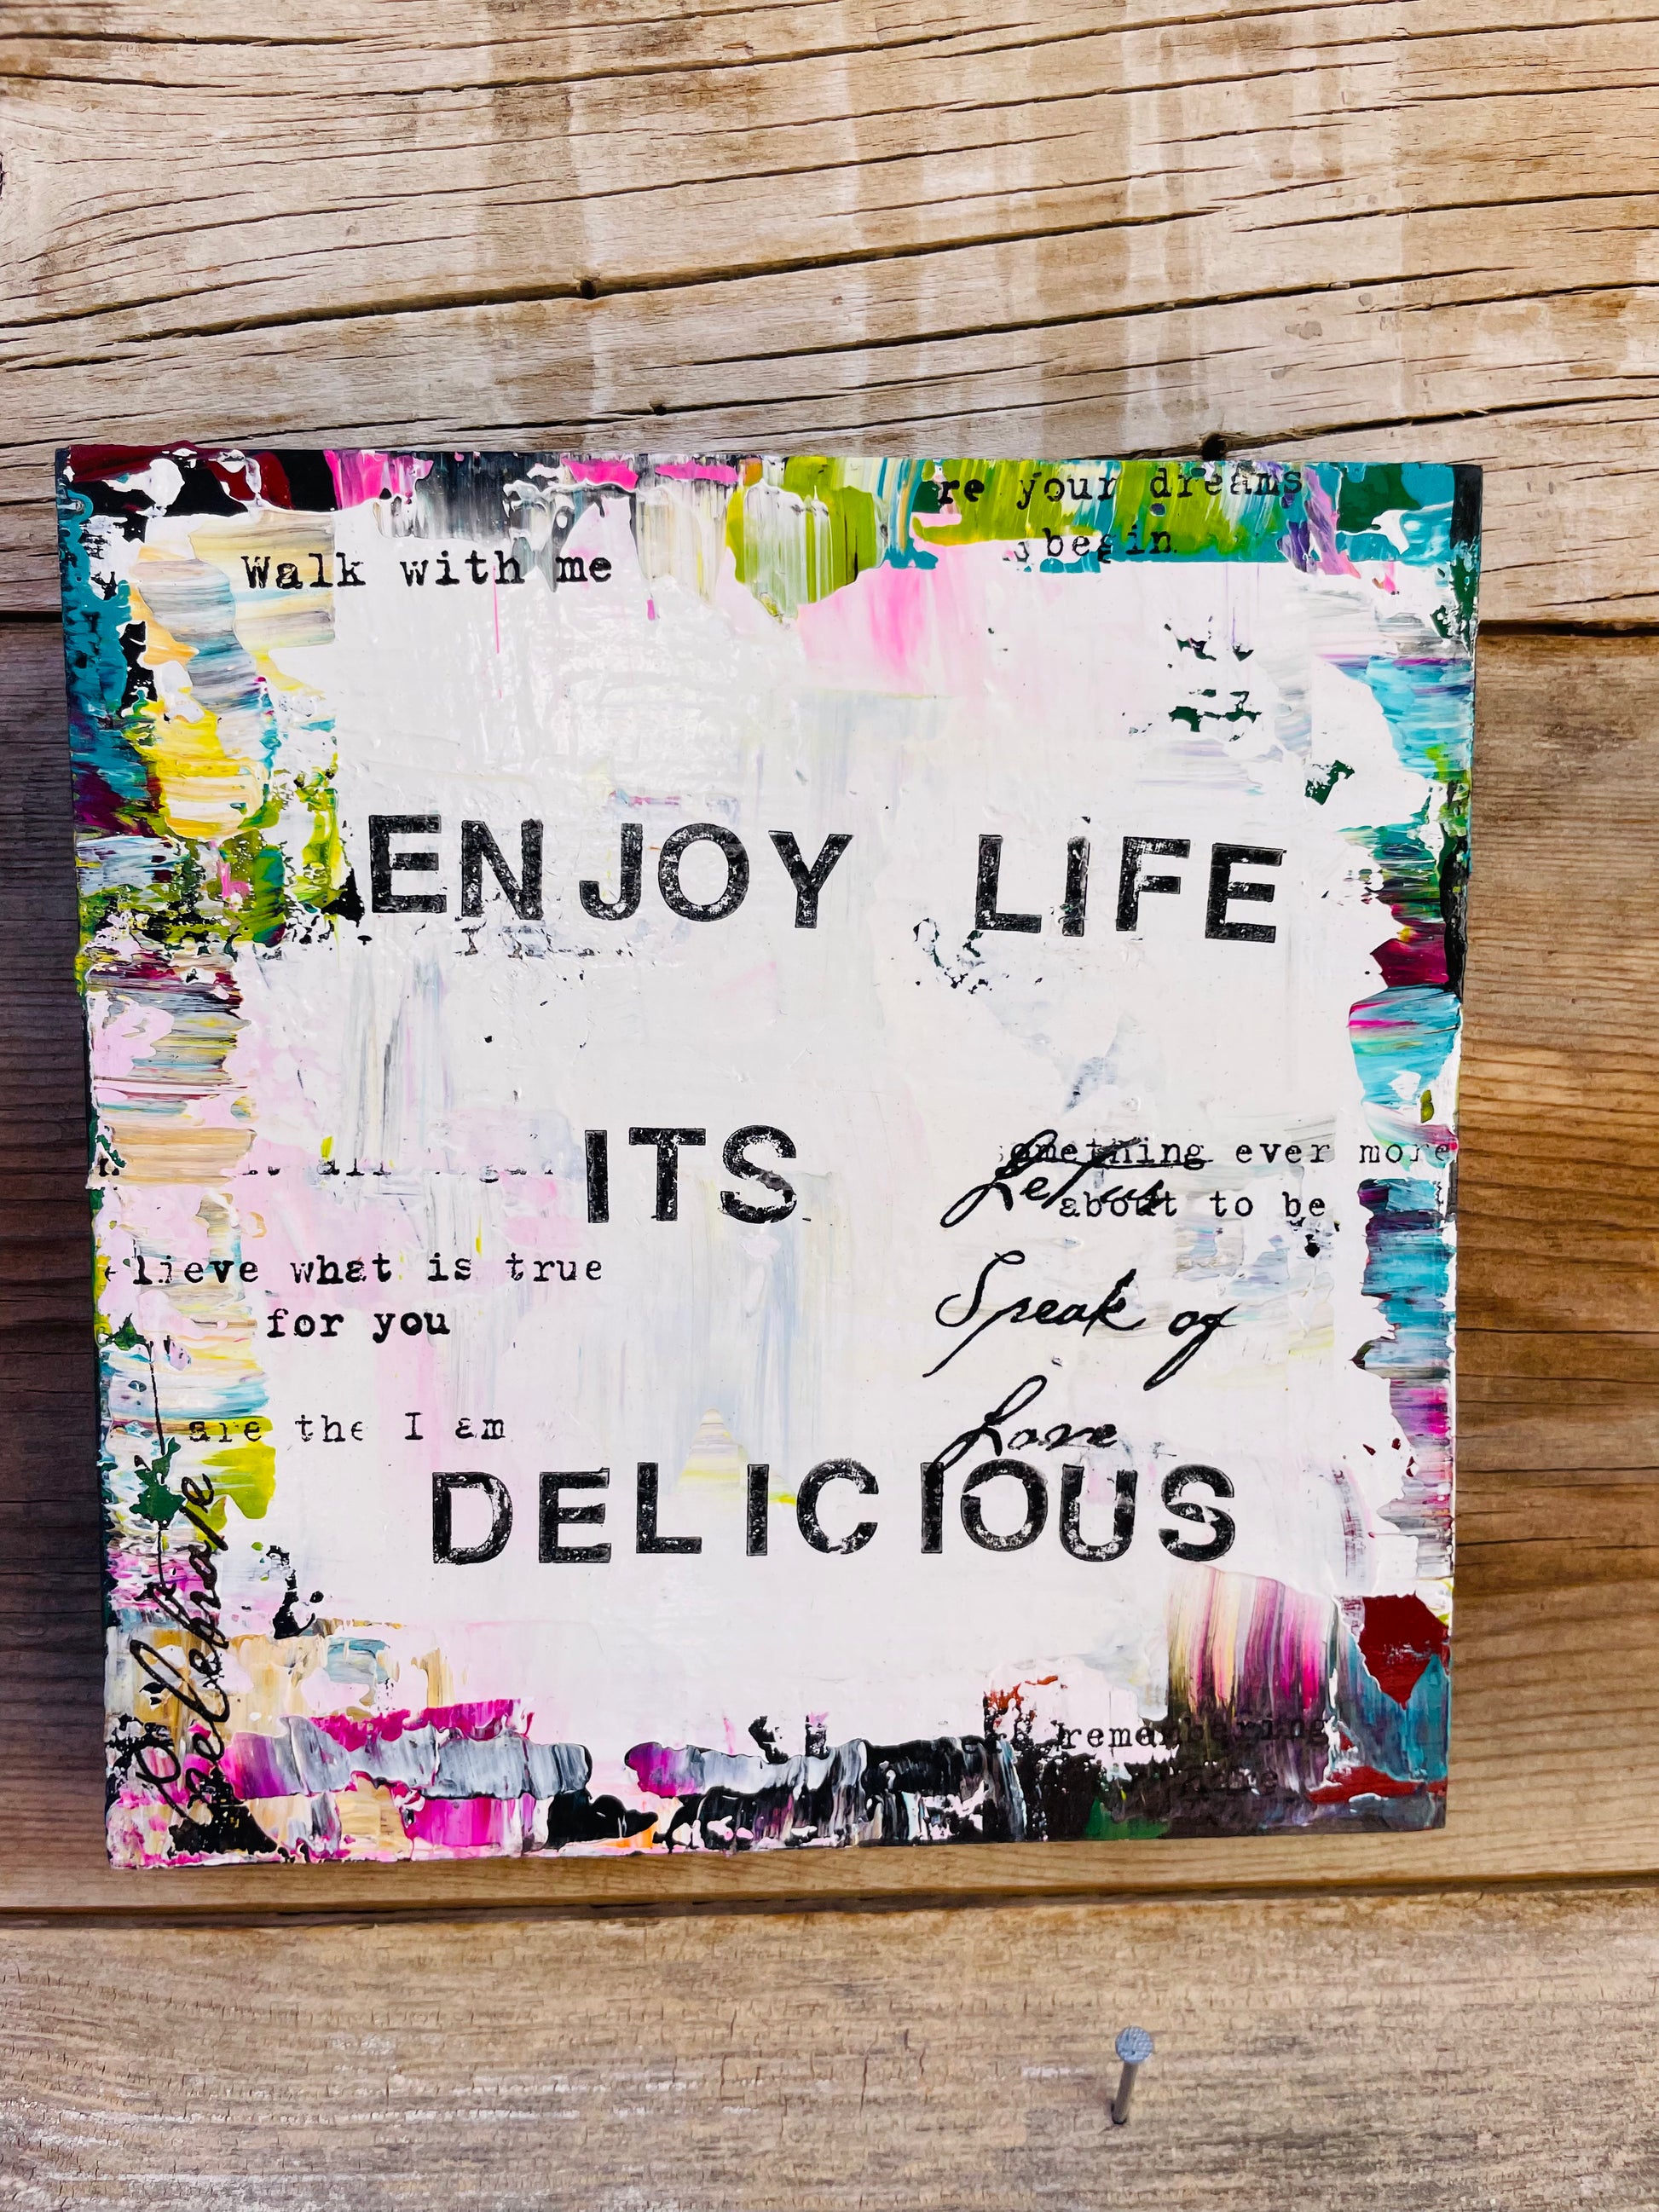 re your dreams
begin
Walk with me
ENJOY LIFE
ITS
all
something ever more
Let us
about to be
elieve what is true
for you
Speak of
Love
are the I am
DELICIOUS
Celebrate
remembering